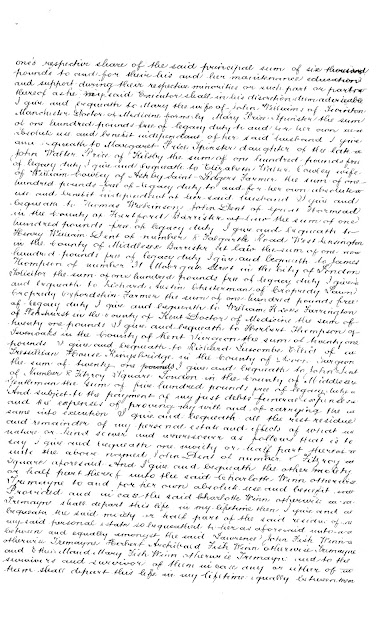 one's respective share of the said principal sum of six thousand
pounds to and for their his and her maintenance education
and support during their respective minorities or such part or parts
thereof as he my said Executor shall in his discretion deem advisable
I give and bequeath to Mary the wife of John Williams of
Manchester Doctor of Medicine formerly Mary Price Spinster the sum
of one hundred pounds free of legacy duty to and for her own
absolute use and benefit independent of her said husband I give
and bequeath to Margaret Price Spinster daughter of the late
John Walter Price of the sum of one hundred pounds free
of legacy duty I give and bequeath to Elizabeth Cowley wife
of William Cowley of Ashby Saint Ledgers Farmer the sum of one
hundred pounds free of legacy duty to and for her own absolute
use and benefit independent of her said husband I give and
bequeath to Thomas John Dent of
in the County of Hertford Barrister at Law the sum of one
hundred pounds free of legacy duty I give and bequeath to
Henry William Dent of number 8 Road West Kensington
in the County of Middlesex Barrister at Law the sum of one
hundred pounds free of legacy duty I give and bequeath to James
Thompson of number Street in the City of London
Solicitor the sum of one hundred pounds free of legacy duty I give
and bequeath to Richard Chesterman of Cropredy Lawn
Cropredy Oxfordshire Farmer the sum of one hundred pounds free
of legacy duty I give and bequeath to William Farrington
of Penshurst in the County of Kent Doctor of Medicine the sum of
twenty one pounds I give and bequeath to Herbert Thompson of
in the County of Kent Surgeon the sum of twenty one
pounds I give and bequeath to Elliot of
House Kingsbridge in the County of Devon Surgeon
the sum of twenty one pounds I give and bequeath to John Dent
of number 8 Fitzroy Square London in the County of Middlesex
Gentleman the sum of five hundred pounds free of legacy duty
And subject to the payment of my just debts funeral expenses
and the expenses of proving my will and of carrying the
same into execution I give and bequeath all the rest residue
and remainder of my personal estate and effects of what
nature or kind soever and wheresoever as follows that is to
say I give and bequeath one moiety or half part thereof
unto the above named John Dent of number 8 Fitzroy
Square aforesaid And I give and bequeath the other moiety
or half part thereof unto the said Charlotte Winn otherwise
Tremayne to and for her own absolute use and benefit
Provided and in case the said Charlotte Winn otherwise
Tremayne shall depart this life in my lifetime then I give and
bequeath the said moiety or half part of the said residue of
my said personal estate so bequeathed to her as aforesaid unto
between and equally amongst the said Lawrence John Fish Winn
otherwise Tremayne Herbert Archibald Fish Winn otherwise Tremayne
and Mary Fish Winn otherwise Tremayne and to the
survivors and survivor of them in case any or either of
them shall depart this life in my lifetime equally between